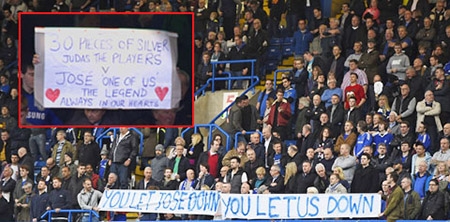 30 PIECES OF SILVER
JUDAS THE PLAYERS
V
JOSÉ ONE OF US
THE LEGEND
ALWAYS IN OUR HEARTS
SAMSUNG
YOU LET JOSE DOWN
YOU LET US DOWN